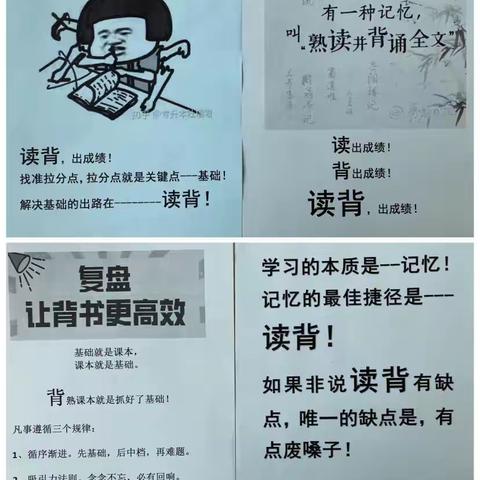 知乎 @专升本赵福霸
读背，出成绩！
找准拉分点，拉分点就是关键点---基础！
解决基础的出路在--------读背！
有一种记忆，
叫“熟读并背诵全文”
读出成绩！
背出成绩！
读背，出成绩！
复盘
让背书更高效
基础就是课本，
课本就是基础。
背熟课本就是抓好了基础！
凡事遵循三个规律：
1、循序渐进。先基础，后中档，再难题。
2、吸引力法则。念念不忘，必有回响。
学习的本质是--记忆！
记忆的最佳捷径是---
读背！
如果非说读背有缺
点，唯一的缺点是，有
点废嗓子！